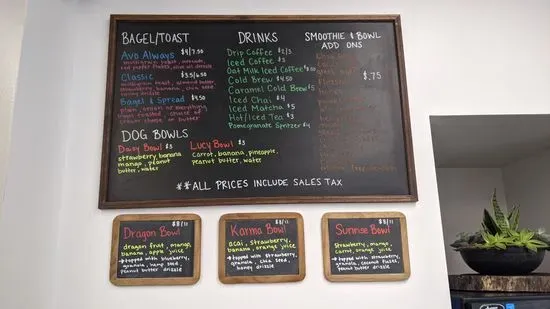 BAGEL/TOAST
Avo Always $4/7.50
multigrain toast, avocado,
red pepper flakes, olive oil drizzle
Classic $3.5/6.50
multigrain toast, almond butter,
strawberry, banana, chia seed
honey drizzle
Bagel & Spread $4.50
plain, onion or everything
bagel toasted, choice of
cream cheese or butter
DRINKS
Drip Coffee $2/3
Iced Coffee $3
Oat Milk Iced Coffee
Cold Brew $4.50
Caramel Cold Brew $5
Iced Chai $4
Iced Matcha $5
Hot/Iced Tea $3
Pomegranate Spritzer $4
SMOOTHIE & BOWL
ADD ONS
$.75
DOG BOWLS
Daisy Bowl $3
strawberry, banana
mango, peanut
butter, water
Lucy Bowl $3
Carrot, banana, pineapple,
peanut butter, water
**ALL PRICES INCLUDE SALES TAX
$8/11
Dragon Bowl
dragon fruit, mango,
banana, apple juice
topped with blueberry,
granola, hemp seed,
peanut butter drizzle
$8/11
Karma Bowl
acai, strawberry,
banana, orange juice
topped with strawberry,
granola, chia seed,
honey drizzle
$8/11
Sunrise Bowl
Strawberry, mango,
carrot, orange juice
topped with strawberry,
granola, coconut flakes,
peanut butter drizzle